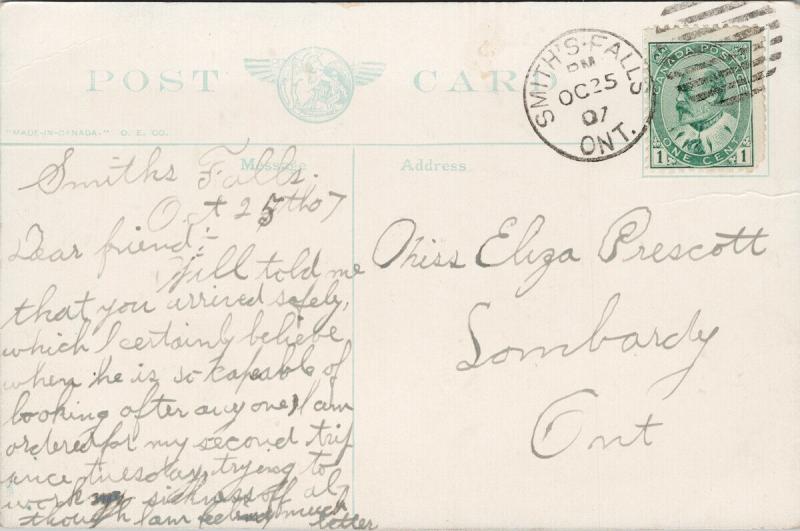 POST CARD
"MADE-IN-CANADA." D. E. CO.
SMITH'S-FALLS
PM
OC 25
07
ONT.
CANADA POSTAGE
1 ONE CENT 1
Message
Address
Smiths Falls.
Oct 25th 07
Dear friend:-
Will told me
that you arrived safely,
which I certainly believe
when he is so capable of
looking after anyone, I am
ordered for my second trip
since tuesday, trying to
work my sickness off al-
though I am feeling much
better
Miss Eliza Prescott
Lombardy
Ont